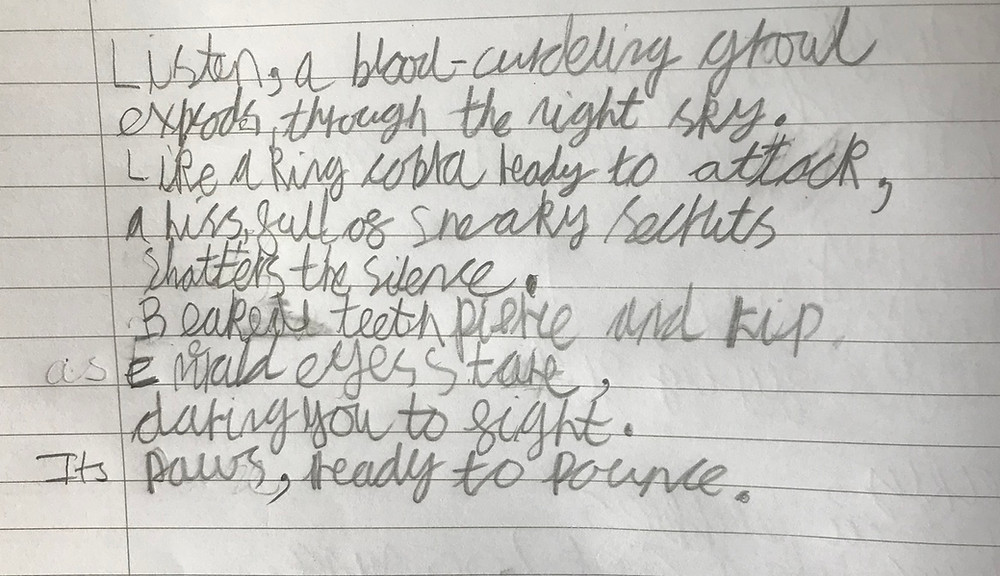 Listen, a blood-curdeling growl
expods, through the night sky.
Like a king cobra ready to attack,
a hiss, full of sneaky secruts
shatters the silence.
Beaked teeth pierce and rip.
as emrald eyes stare,
daring you to fight.
Its paws, ready to pounce.